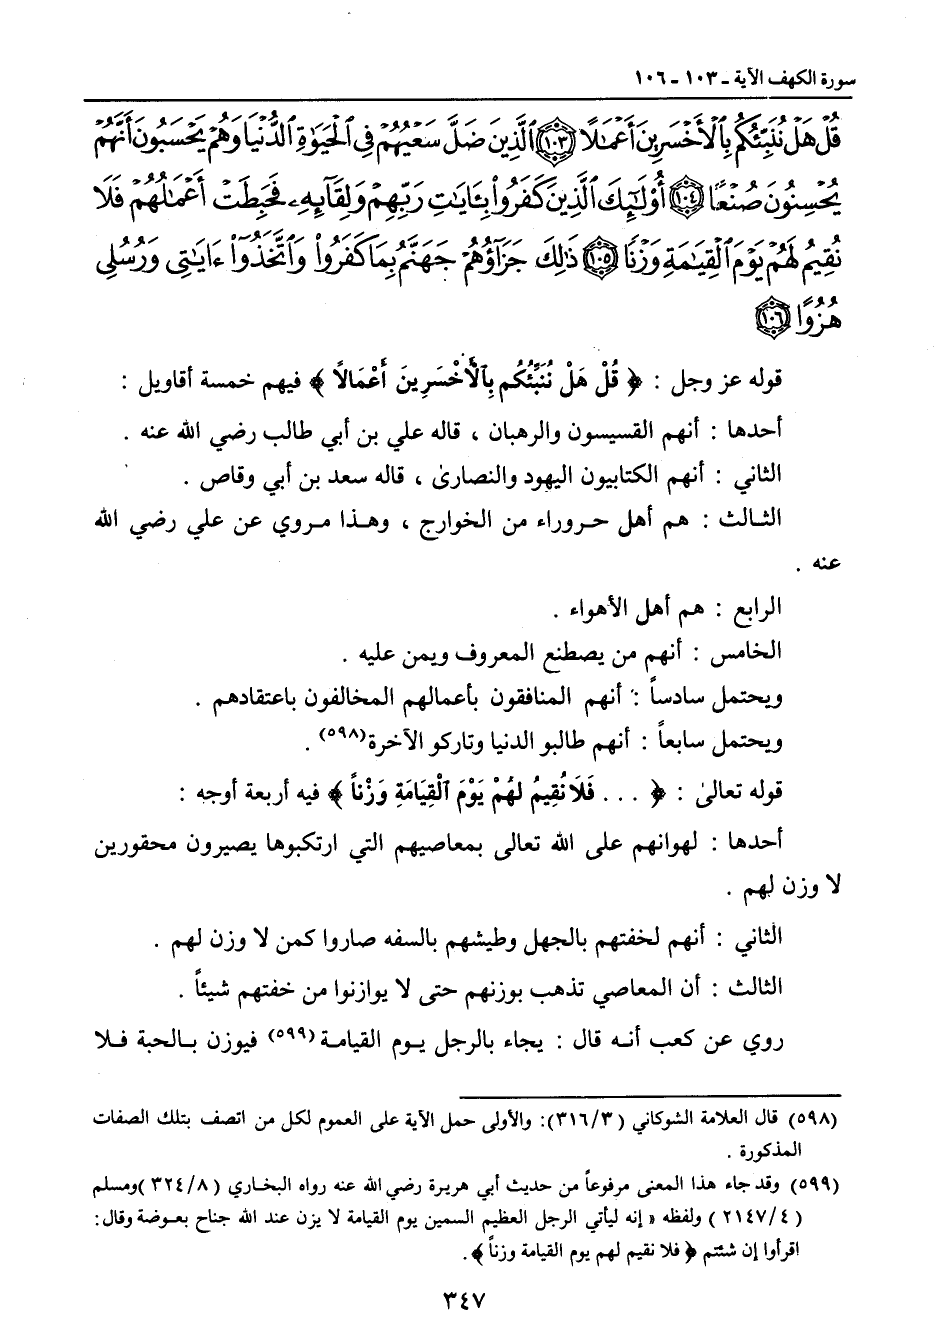 سورة الكهف الآية ـ ١٠٣ ـ ١٠٦
قُلْ هَلْ نُنَبِّئُكُم بِالْأَخْسَرِينَ أَعْمَٰلًا ﴿١٠٣﴾ ٱلَّذِينَ ضَلَّ سَعْيُهُمْ فِي ٱلْحَيَوٰةِ ٱلدُّنْيَا وَهُمْ يَحْسَبُونَ أَنَّهُمْ
يُحْسِنُونَ صُنْعًا ﴿١٠٤﴾ أُوْلَٰٓئِكَ ٱلَّذِينَ كَفَرُوا۟ بِـَٔايَٰتِ رَبِّهِمْ وَلِقَآئِهِۦ فَحَبِطَتْ أَعْمَٰلُهُمْ فَلَا
نُقِيمُ لَهُمْ يَوْمَ ٱلْقِيَٰمَةِ وَزْنًا ﴿١٠٥﴾ ذَٰلِكَ جَزَآؤُهُمْ جَهَنَّمُ بِمَا كَفَرُوا۟ وَٱتَّخَذُوٓا۟ ءَايَٰتِى وَرُسُلِى
هُزُوًا ﴿١٠٦﴾
قوله عز وجل : ﴿ قُلْ هَلْ نُنَبِّئُكُم بِالْأَخْسَرِينَ أَعْمَالًا ﴾ فيهم خمسة أقاويل :
أحدها : أنهم القسيسون والرهبان ، قاله علي بن أبي طالب رضي الله عنه .
الثاني : أنهم الكتابيون اليهود والنصارىٰ ، قاله سعد بن أبي وقاص .
الثالث : هم أهل حروراء من الخوارج ، وهذا مروي عن علي رضي الله
عنه .
الرابع : هم أهل الأهواء .
الخامس : أنهم من يصطنع المعروف ويمن عليه .
ويحتمل سادساً : أنهم المنافقون بأعمالهم المخالفون باعتقادهم .
ويحتمل سابعاً : أنهم طالبو الدنيا وتاركو الآخرة(٥٩٨) .
قوله تعالىٰ : ﴿ . . . فَلَا نُقِيمُ لَهُمْ يَوْمَ ٱلْقِيَامَةِ وَزْناً ﴾ فيه أربعة أوجه :
أحدها : لهوانهم على الله تعالى بمعاصيهم التي ارتكبوها يصيرون محقورين
لا وزن لهم .
الثاني : أنهم لخفتهم بالجهل وطيشهم بالسفه صاروا كمن لا وزن لهم .
الثالث : أن المعاصي تذهب بوزنهم حتى لا يوازنوا من خفتهم شيئاً .
روي عن كعب أنه قال : يجاء بالرجل يوم القيامة (٥٩٩) فيوزن بالحبة فلا
(٥٩٨) قال العلامة الشوكاني (٣١٦/٣): والأولى حمل الآية على العموم لكل من اتصف بتلك الصفات
المذكورة .
(٥٩٩) وقد جاء هذا المعنى مرفوعاً من حديث أبي هريرة رضي الله عنه رواه البخاري (٣٢٤/٨)ومسلم
(٢١٤٧/٤) ولفظه « إنه ليأتي الرجل العظيم السمين يوم القيامة لا يزن عند الله جناح بعوضة وقال:
اقرأوا إن شئتم ﴿ فلا نقيم لهم يوم القيامة وزناً ﴾.
٣٤٧